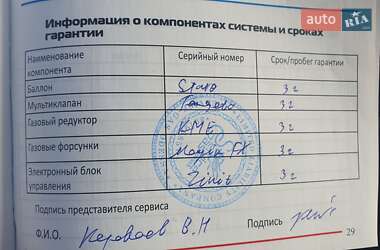 auto RIA.com
Информация о компонентах системы и сроках
гарантии
Наименование компонента Серийный номер Срок/пробег гарантии
Баллон Stako 3 г
Мультиклапан 3 г
Газовый редуктор KME 3 г
Газовые форсунки Magic FX 3 г
Электронный блок управления 3 г
Подпись представителя сервиса
Ф.И.О. В.Н Подпись
29